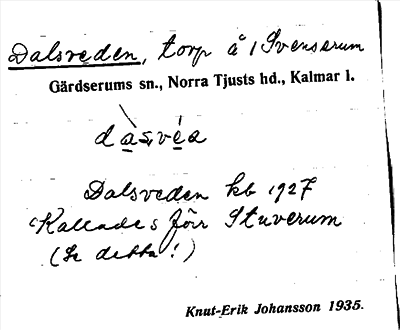 Dalsveden, torp å 1 Svenserum
Gärdserums sn., Norra Tjusts hd., Kalmar l.
dàsvéa
Dalsveden kb 1927
Kallades förr Stuverum
(Se detta!)
Knut-Erik Johansson 1935.